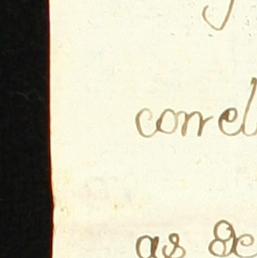 correl
as Se